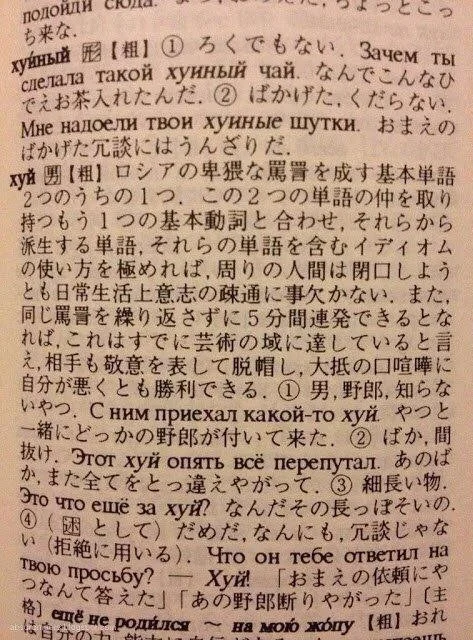 подойди сюда.
ち来な.
хуйный 形【粗】① ろくでもない. Зачем ты
сделала такой хуиный чай. なんでこんなひ
でえお茶入れたんだ. ② ばかげた, くだらない.
Мне надоели твои хуиные шутки. おまえの
ばかげた冗談にはうんざりだ.
хуй 男【粗】ロシアの卑猥な罵詈を成す基本単語
2つのうちの1つ. この2つの単語の仲を取り
持つもう1つの基本動詞と合わせ, それらから
派生する単語, それらの単語を含むイディオム
の使い方を極めれば, 周りの人間は閉口しよう
とも日常生活上意志の疎通に事欠かない. また,
同じ罵詈を繰り返さずに5分間連発できるとな
れば, これはすでに芸術の域に達していると言
え, 相手も敬意を表して脱帽し, 大抵の口喧嘩に
自分が悪くとも勝利できる. ① 男, 野郎, 知らな
いやつ. С ним приехал какой-то хуй. やつと
一緒にどっかの野郎が付いて来た. ② ばか, 間
抜け. Этот хуй опять всё перепутал. あのば
か, また全てをとっ違えやがって. ③ 細長い物.
Это что ещё за хуй? なんだその長っぽそいの.
④ (述 として) だめだ, なんにも, 冗談じゃな
い (拒絶に用いる). Что он тебе ответил на
твою просьбу? — Хуй! 「おまえの依頼にや
つなんて答えた」「あの野郎断りやがった」〔主
格〕 ещё не родился ~ на мою жопу【粗】おれ